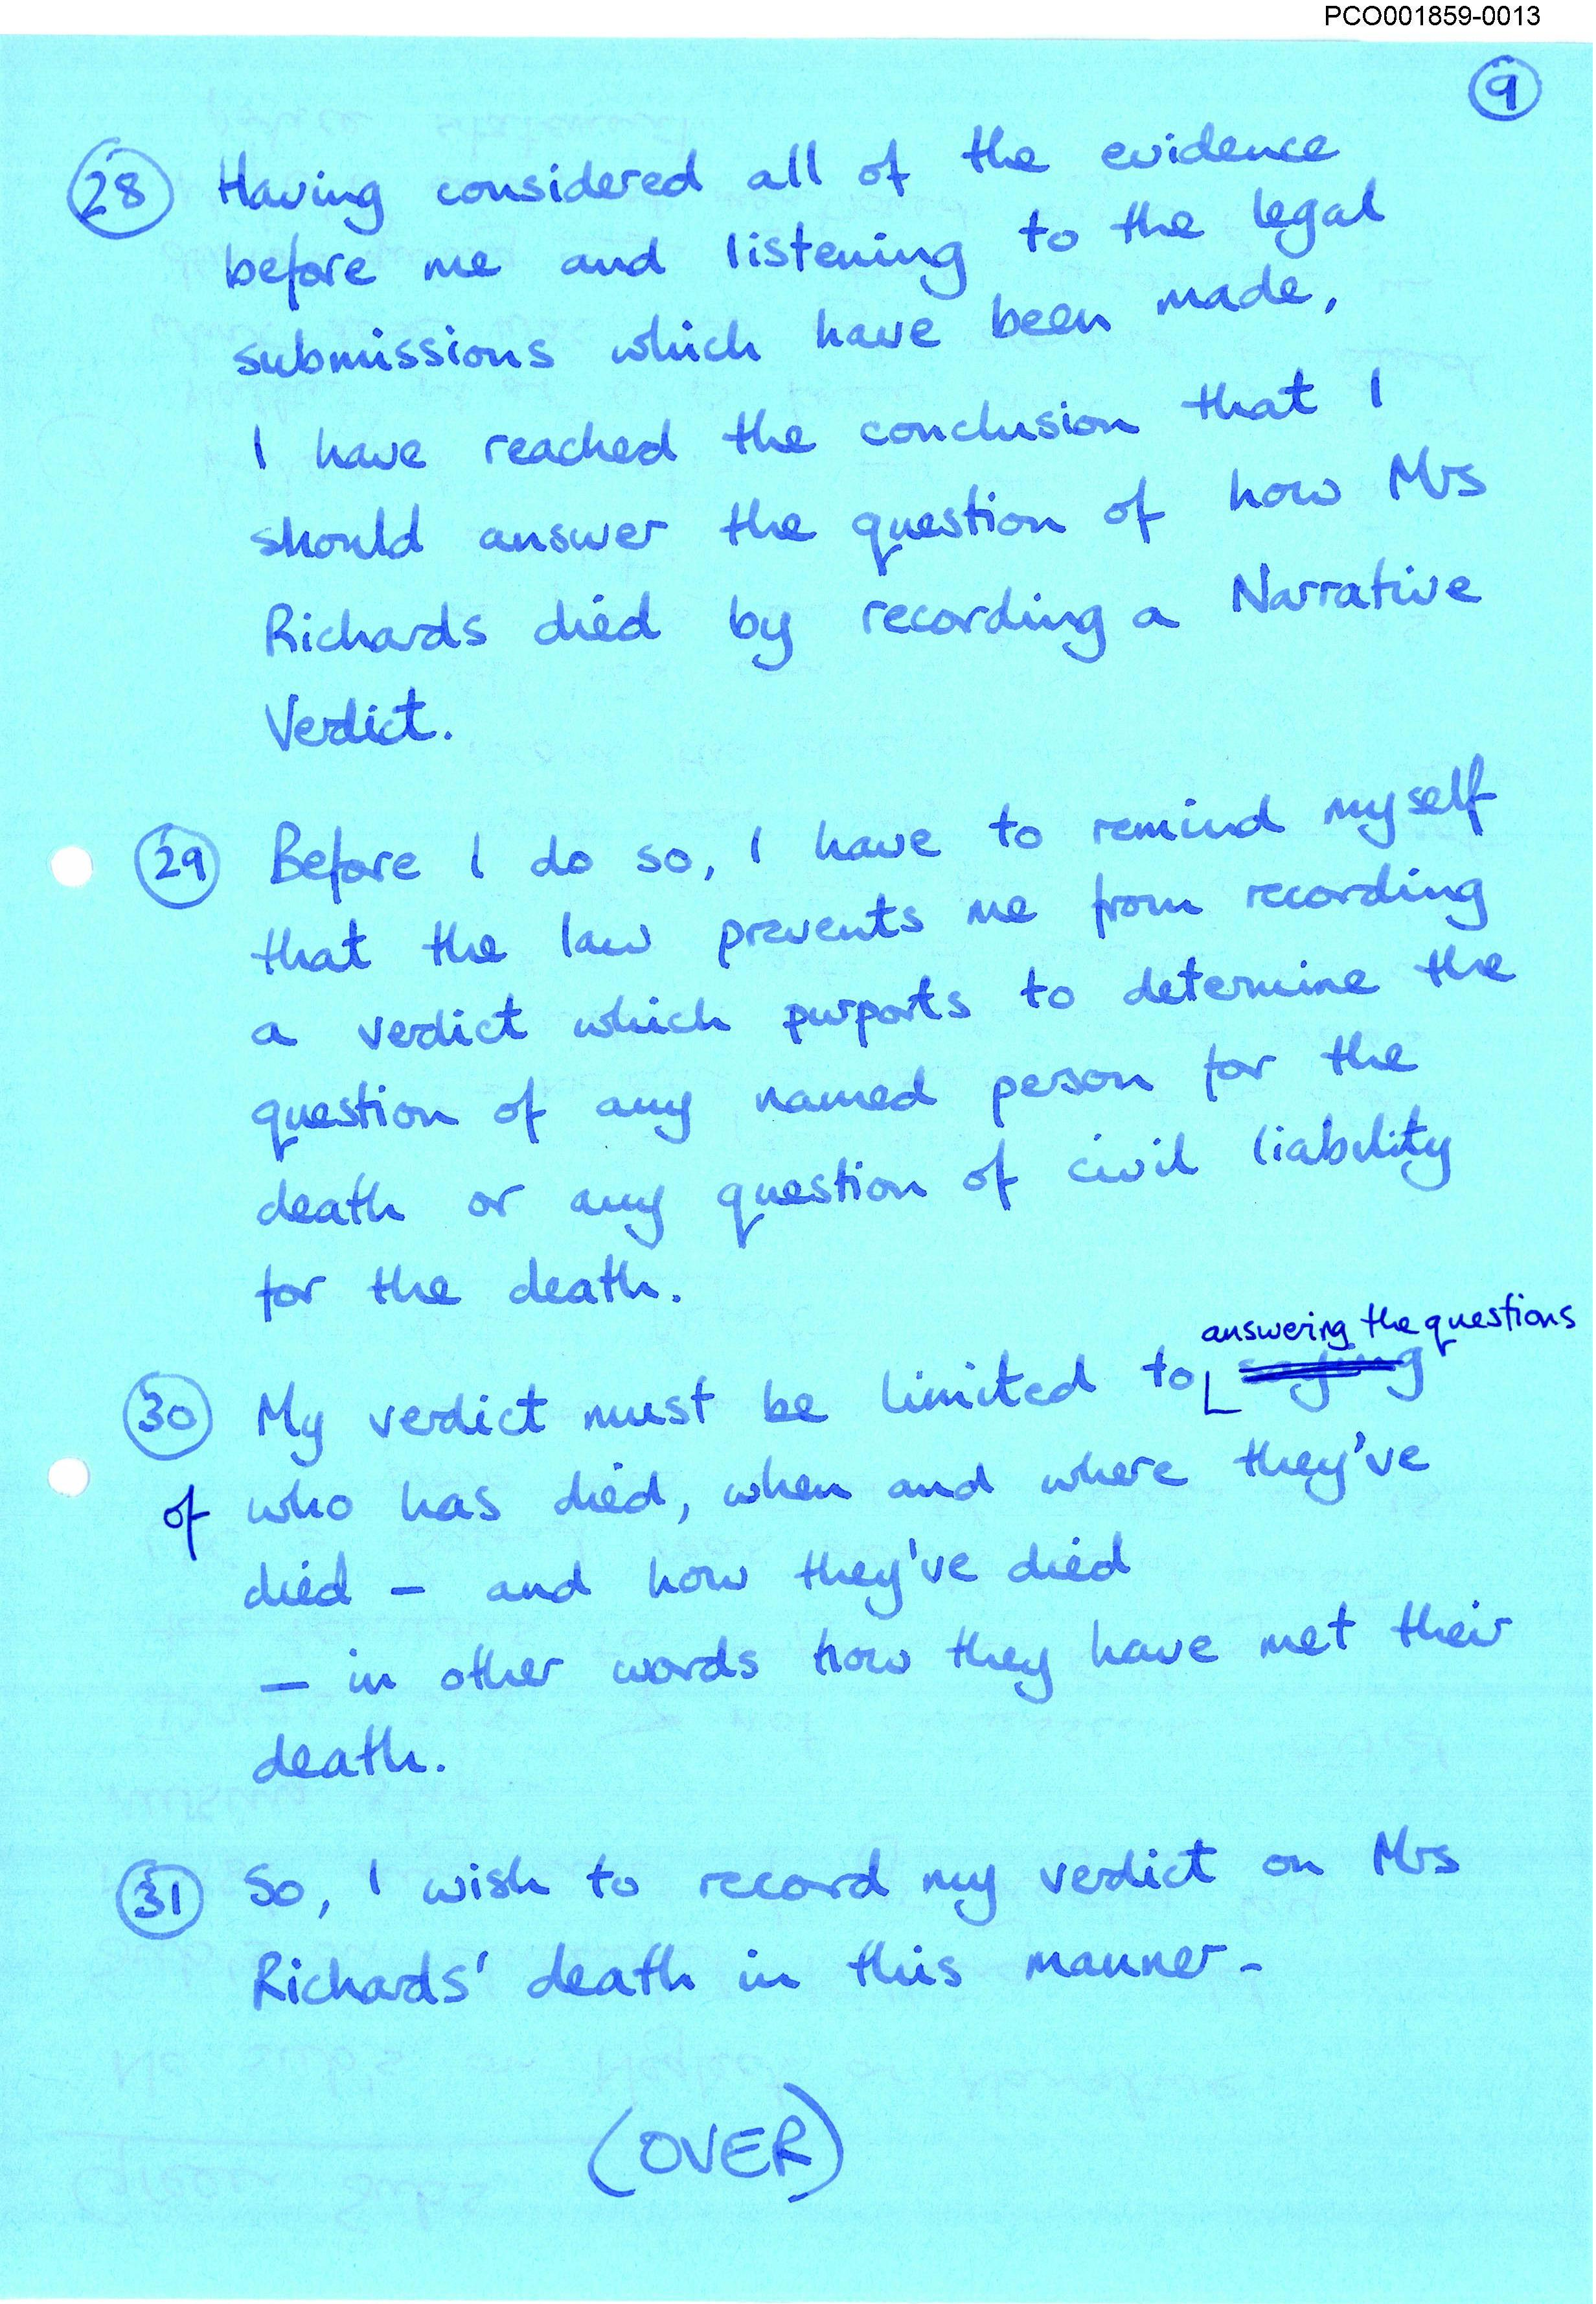 PCO001859-0013
9
28 Having considered all of the evidence
before me and listening to the legal
submissions which have been made,
I have reached the conclusion that I
should answer the question of how Mrs
Richards died by recording a Narrative
Verdict.
29 Before I do so, I have to remind myself
that the law prevents me from recording
a verdict which purports to determine the
question of any named person for the
death or any question of civil liability
for the death.
answering the questions
30 My verdict must be limited to saying
of who has died, when and where they've
died – and how they've died
– in other words how they have met their
death.
31 So, I wish to record my verdict on Mrs
Richards' death in this manner -
(OVER)